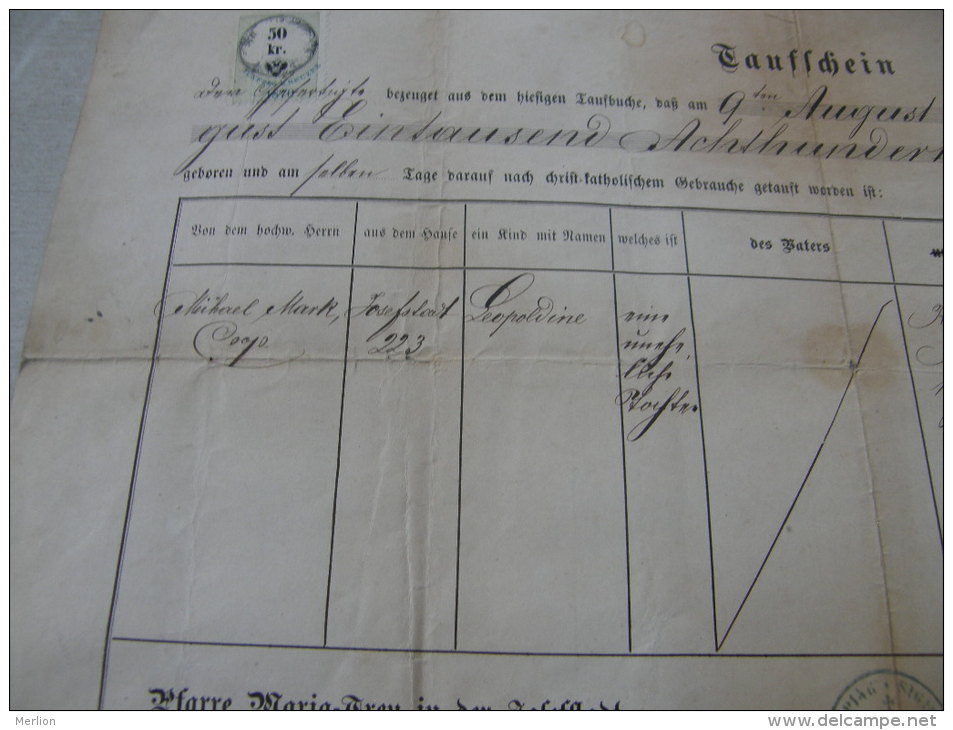 50
kr.
Taufschein
Der Gefertigte bezeuget aus dem hiesigen Taufbuche, daß am 9ten August
gust Eintausend Achthundert
geboren und am selben Tage darauf nach christ-katholischem Gebrauche getauft worden ist:
Von dem hochw. Herrn aus dem Hause ein Kind mit Namen welches ist des Vaters
Mihael Mark, Josefstadt Leopoldine eine
Coop. 223 unehe
liche
Tochter
Pfarre Maria-Treu in der Josefstadt
Merlion
www.delcampe.net